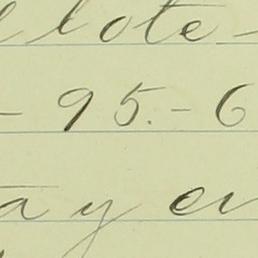 lote-
- 95.-6
ay en